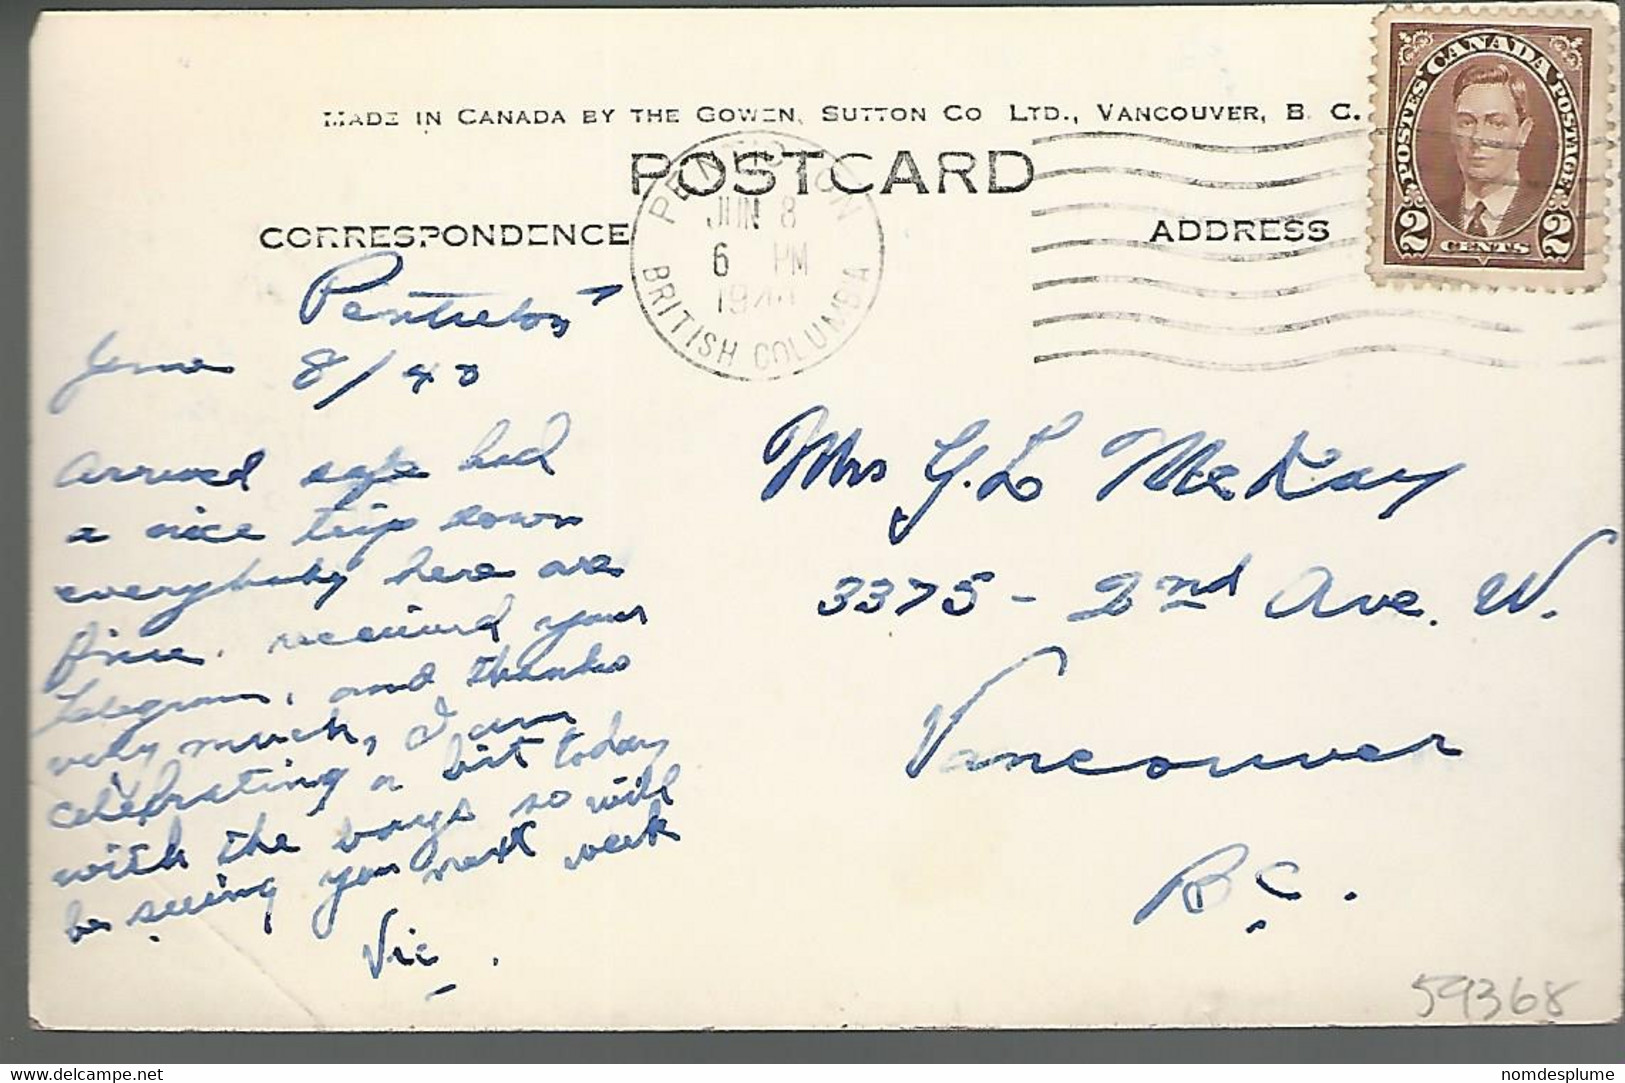 MADE IN CANADA BY THE GOWEN, SUTTON CO LTD., VANCOUVER, B. C.
POSTCARD
CORRESPONDENCE
ADDRESS
PENTICTON
JUN 8
6 PM
194
BRITISH COLUMBIA
CANADA
POSTES POSTAGE
2 CENTS 2
Penticton
June 8/40
Arrived safe had
a nice trip down
everybody here are
fine. received your
telegram, and thanks
very much, I am
celebrating a bit today
with the boys so will
be seeing you next week
Vic.
Mrs G. L McKay
3375 - 2nd Ave. W.
Vancouver
B.C.
59368
delcampe.net
nomdesplume